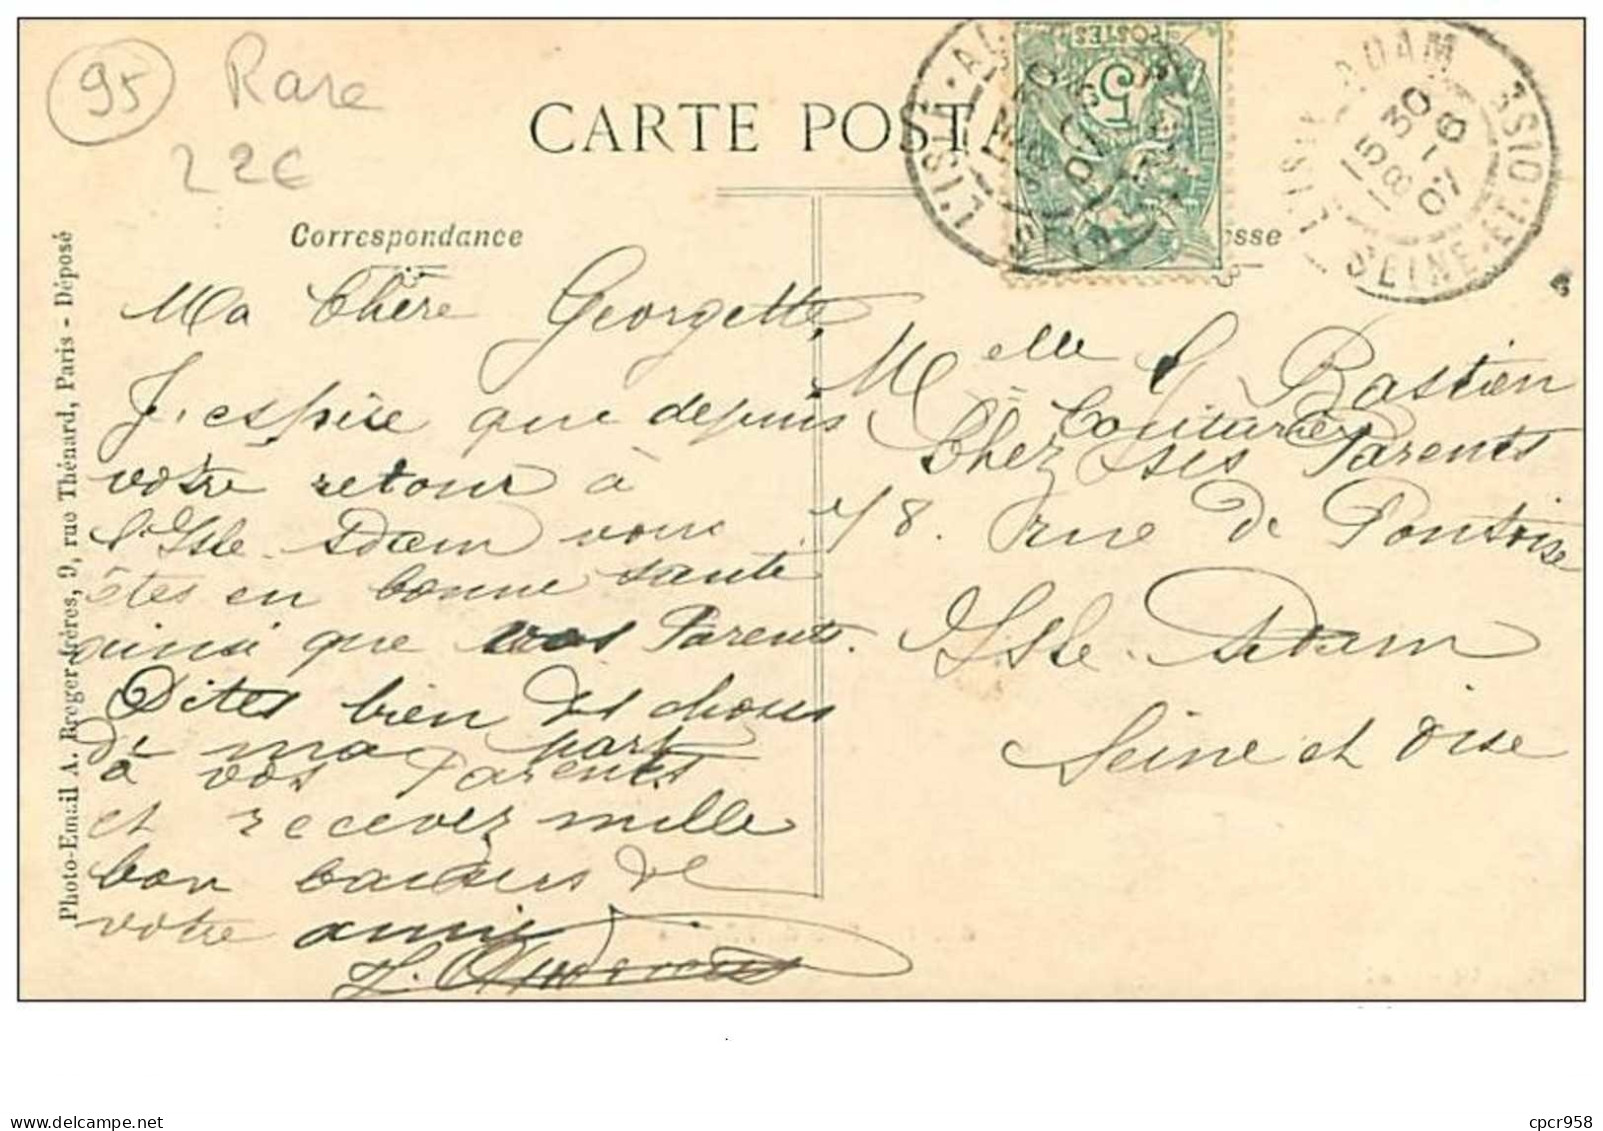 95
Rare
22€
CARTE POST
Correspondance
esse
L'ISLE-ADAM
SEINE-ET-OISE
15 30
8 - 6
07
POSTES
5
Ma Chère Georgette,
J'espère que depuis
votre retour à
l'Isle-Adam vous
êtes en bonne santé
ainsi que vos Parents.
Dites bien des choses
de ma part
à vos Parents
et recevez mille
bon baisers de
votre amie
Melle G Bastien
Couturière
Chez ses Parents
78. rue de Pontoise
Isle-Adam
Seine et Oise
Photo-Email A. Breger frères, 9, rue Thénard, Paris - Déposé
cpcr958